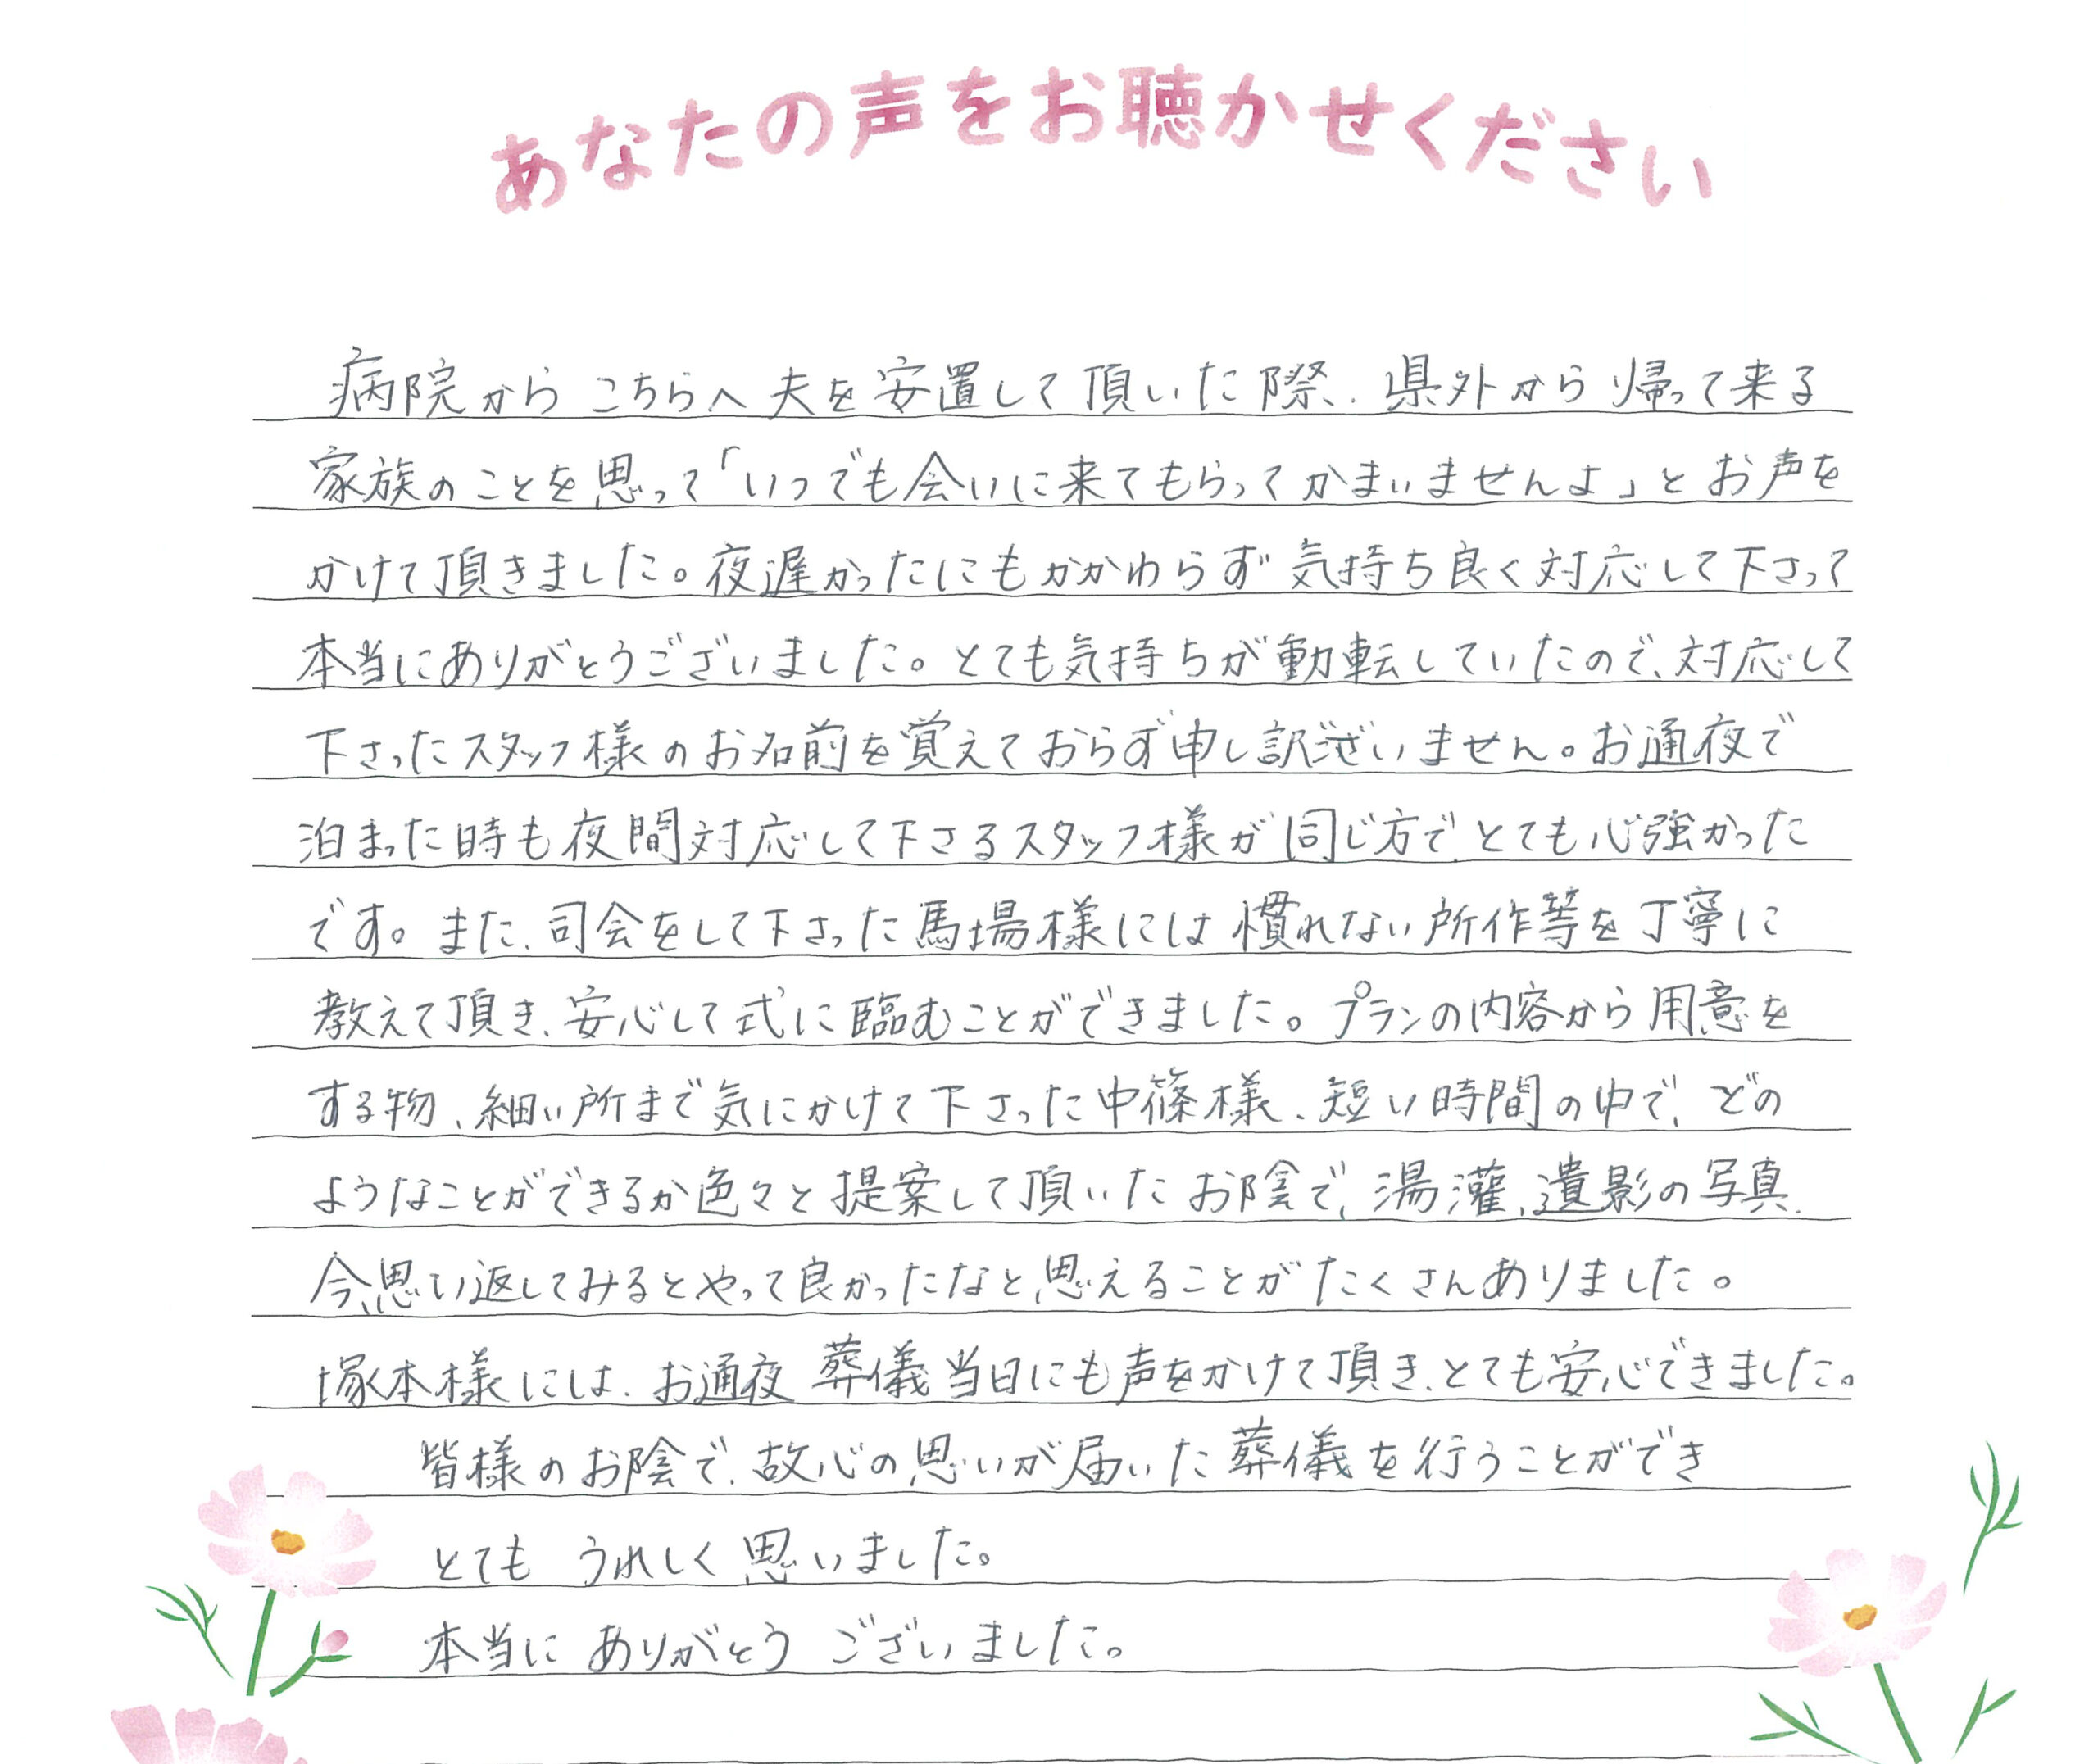 あなたの声をお聴かせください
病院からこちらへ夫を安置して頂いた際、県外から帰って来る
家族のことを思って「いつでも会いに来てもらってかまいませんよ」とお声を
かけて頂きました。夜遅かったにもかかわらず気持ち良く対応して下さって
本当にありがとうございました。とても気持ちが動転していたので、対応して
下さったスタッフ様のお名前を覚えておらず申し訳ございません。お通夜で
泊まった時も夜間対応して下さるスタッフ様が同じ方で、とても心強かった
です。また、司会をして下さった馬場様には慣れない所作等を丁寧に
教えて頂き、安心して式に臨むことができました。プランの内容から用意を
する物、細い所まで気にかけて下さった中篠様、短い時間の中で、どの
ようなことができるか色々と提案して頂いたお陰で、湯灌、遺影の写真、
今、思い返してみるとやって良かったなと思えることがたくさんありました。
塚本様には、お通夜 葬儀当日にも声をかけて頂き、とても安心できました。
皆様のお陰で、故心の思いが届いた葬儀を行うことができ
とても うれしく思いました。
本当に ありがとう ございました。